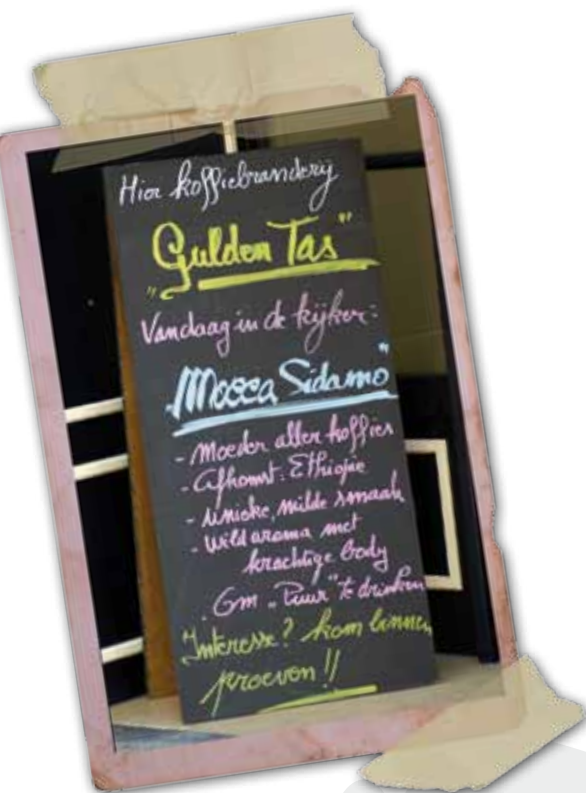 Hier koffiebranderij
"Gulden Tas"
Vandaag in de kijker:
"Mocca Sidamo"
- Moeder aller koffies
- Afkomst: Ethiopie
- Unieke, milde smaak
- Wild aroma met
krachtige body
Om "Puur" te drinken
Interesse? kom binnen
proeven!!